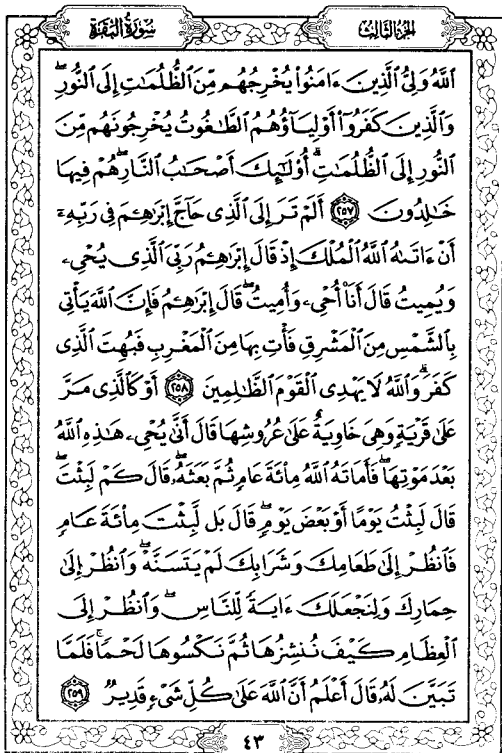 سُورَةُ البَقَرَةِ
الجزء الثالث
ٱللَّهُ وَلِيُّ ٱلَّذِينَ ءَامَنُوا۟ يُخْرِجُهُم مِّنَ ٱلظُّلُمَٰتِ إِلَى ٱلنُّورِۖ
وَٱلَّذِينَ كَفَرُوٓا۟ أَوْلِيَآؤُهُمُ ٱلطَّٰغُوتُ يُخْرِجُونَهُم مِّنَ
ٱلنُّورِ إِلَى ٱلظُّلُمَٰتِۗ أُو۟لَٰٓئِكَ أَصْحَٰبُ ٱلنَّارِۖ هُمْ فِيهَا
خَٰلِدُونَ ٢٥٧ أَلَمْ تَرَ إِلَى ٱلَّذِى حَآجَّ إِبْرَٰهِـۧمَ فِى رَبِّهِۦٓ
أَنْ ءَاتَىٰهُ ٱللَّهُ ٱلْمُلْكَ إِذْ قَالَ إِبْرَٰهِـۧمُ رَبِّىَ ٱلَّذِى يُحْىِۦ
وَيُمِيتُ قَالَ أَنَا۠ أُحْىِۦ وَأُمِيتُۖ قَالَ إِبْرَٰهِـۧمُ فَإِنَّ ٱللَّهَ يَأْتِى
بِٱلشَّمْسِ مِنَ ٱلْمَشْرِقِ فَأْتِ بِهَا مِنَ ٱلْمَغْرِبِ فَبُهِتَ ٱلَّذِى
كَفَرَۗ وَٱللَّهُ لَا يَهْدِى ٱلْقَوْمَ ٱلظَّٰلِمِينَ ٢٥٨ أَوْ كَٱلَّذِى مَرَّ
عَلَىٰ قَرْيَةٍ وَهِىَ خَاوِيَةٌ عَلَىٰ عُرُوشِهَا قَالَ أَنَّىٰ يُحْىِۦ هَٰذِهِ ٱللَّهُ
بَعْدَ مَوْتِهَاۖ فَأَمَاتَهُ ٱللَّهُ مِا۟ئَةَ عَامٍ ثُمَّ بَعَثَهُۥۖ قَالَ كَمْ لَبِثْتَۖ
قَالَ لَبِثْتُ يَوْمًا أَوْ بَعْضَ يَوْمٍۖ قَالَ بَل لَّبِثْتَ مِا۟ئَةَ عَامٍ
فَٱنظُرْ إِلَىٰ طَعَامِكَ وَشَرَابِكَ لَمْ يَتَسَنَّهْۖ وَٱنظُرْ إِلَىٰ
حِمَارِكَ وَلِنَجْعَلَكَ ءَايَةً لِّلنَّاسِۖ وَٱنظُرْ إِلَى
ٱلْعِظَامِ كَيْفَ نُنشِزُهَا ثُمَّ نَكْسُوهَا لَحْمًاۚ فَلَمَّا
تَبَيَّنَ لَهُۥ قَالَ أَعْلَمُ أَنَّ ٱللَّهَ عَلَىٰ كُلِّ شَىْءٍ قَدِيرٌ ٢٥٩
٤٣